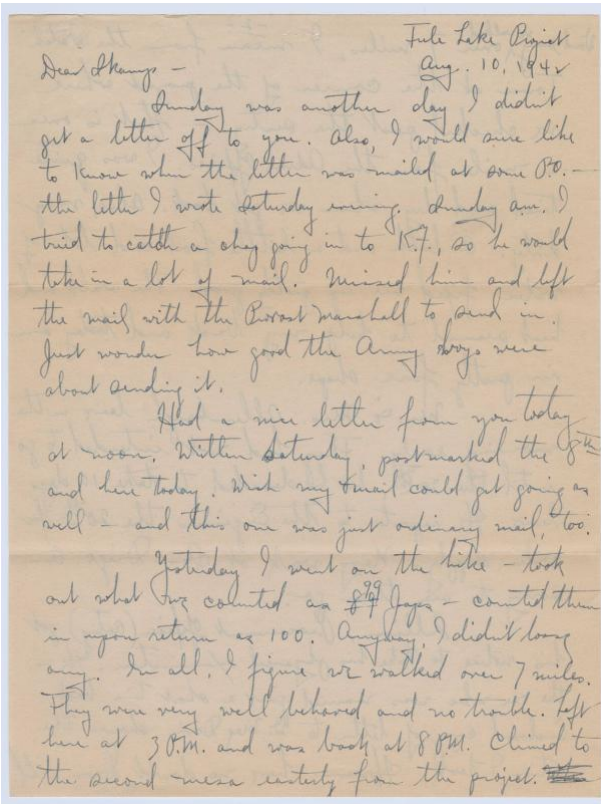 Tule Lake Project
Aug. 10, 1942
Dear Skamp –
Sunday was another day I didn't
get a letter off to you. Also, I would sure like
to know when the letter was mailed at some P.O. –
the letter I wrote Saturday evening. Sunday am. I
tried to catch a chap going in to K.F., so he would
take in a lot of mail. Missed him and left
the mail with the Provost Marshall to send in.
Just wonder how good the Army boys were
about sending it.
Had a nice letter from you today
at noon. Written Saturday, postmarked the 8th
and here today. Wish my mail could get going as
well – and this one was just ordinary mail, too.
Yesterday I went on the hike – took
out what we counted as 99 Japs – counted them
in upon return as 100. Anyway, I didn't loose
any. In all, I figure we walked over 7 miles.
They were very well behaved and no trouble. Left
here at 3 P.M. and was back at 8 P.M. Climed to
the second mesa easterly from the project.